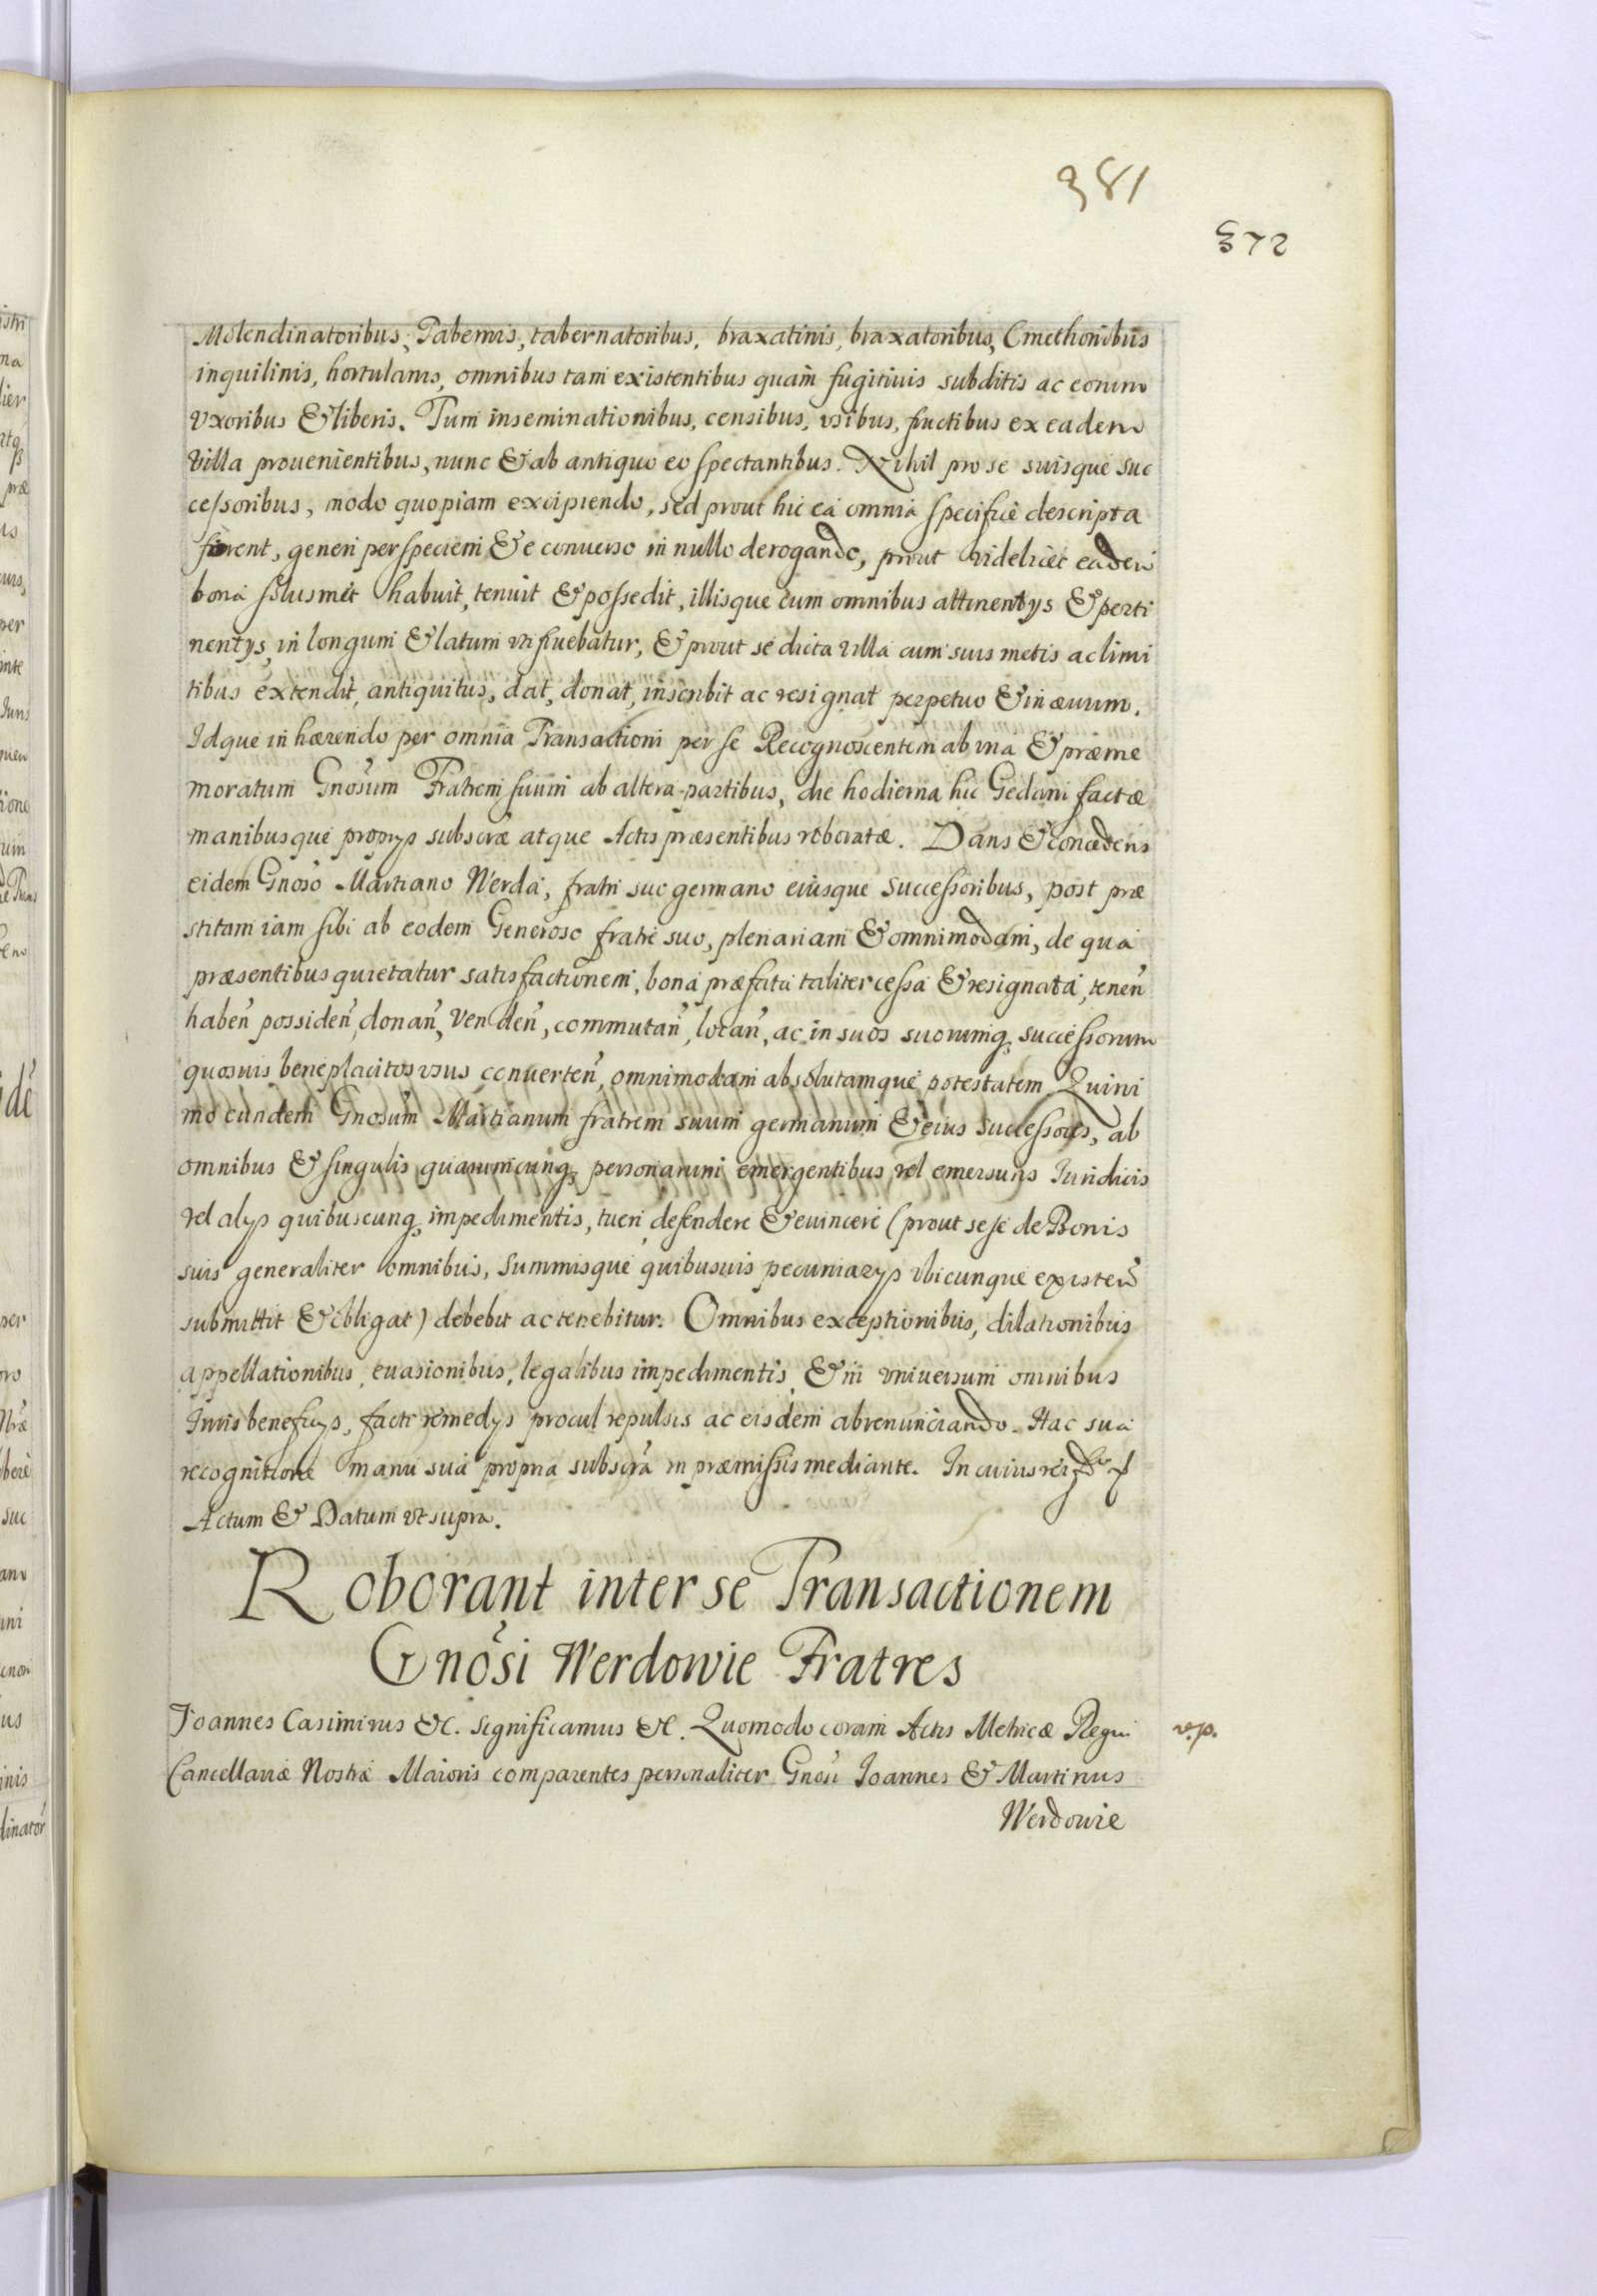 381
372
Molendinatoribus, Tabernis, tabernatoribus, braxatinis, braxatoribus, Cmethonibus
inquilinis, hortulanis, omnibus tam existentibus quam fugitiuis subditis ac eorum
vxoribus & liberis. Tum inseminationibus, censibus, vsibus, fructibus ex eadem
villa prouenientibus, nunc & ab antiquo eo spectantibus. Nihil pro se suisque suc
cessoribus, modo quopiam excipiendo, sed prout hic ea omnia specifice descripta
forent, generi per speciem & e conuerso in nullo derogando, prout videlicet eadem
bona solusmet habuit, tenuit & possedit, illisque cum omnibus attinentijs & perti
nentijs in longum & latum vti fruebatur, & prout se dicta villa cum suis metis ac limi
tibus extendit, antiquitus, dat, donat, inscribit ac resignat perpetuo & in æuum.
Idque inhærendo per omnia Transactioni per se Recognoscentem ab vna & præme
moratum Gnosum Fratrem suum ab altera partibus, die hodierna hic Gedani factæ
manibusque proprijs subscræ atque Actis præsentibus roboratæ. Dans & concedens
eidem Gnoso Martiano Werda, fratri suo germano eiusque successoribus, post præ
stitam iam sibi ab eodem Generoso fratre suo, plenariam & omnimodam, de qua
præsentibus quietatur satisfactionem, bona præfata taliter cessa & resignata, tenen
haben possiden, donan, venden, commutan, locan, ac in suos suorumq successorum
quosuis beneplacitos vsus conuerten, omnimodam absolutamque potestatem. Quini
mo eundem Gnosum Martianum fratrem suum germanum & eius successores, ab
omnibus & singulis quarumcunq personarum emergentibus vel emersuris Iuridicis
vel alijs quibuscunq impedimentis, tueri defendere & euincere (prout sese de Bonis
suis generaliter omnibus, summisque quibusuis pecuniarijs vbicunque existen
submittit & obligat) debebit ac tenebitur. Omnibus exceptionibus, dilationibus
appellationibus, euasionibus, legalibus impedimentis, & in vniuersum omnibus
Iuris beneficijs, facti remedijs procul repulsis ac eisdem abrenunciando. Hac sua
recognitione manu sua propria subscra in præmissis mediante. In cuius rei
Actum & Datum vt supra.
Roborant inter se Transactionem
Gnosi Werdowie Fratres
Joannes Casimirus &c. significamus &c. Quomodo coram Actis Metricæ Regni
Cancellariæ Nostræ Maioris comparentes personaliter Gnosi Joannes & Martinus
Werdowie